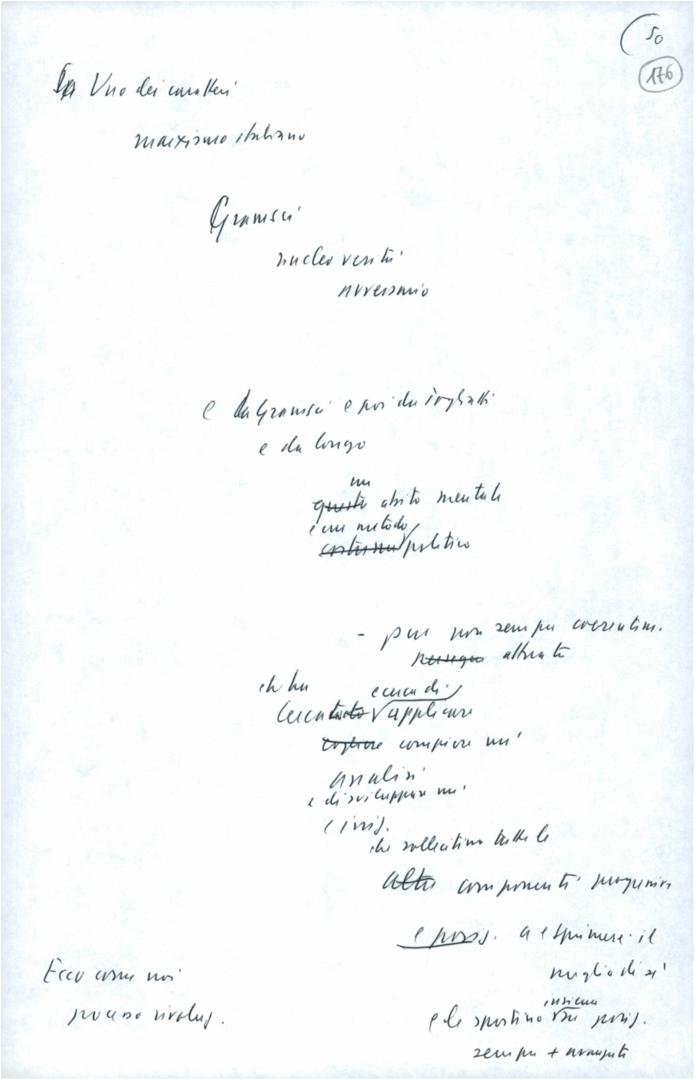 50
176
Uno dei caratteri
marxismo italiano
Gramsci
nucleo verità
avversario
e da Gramsci e poi da Togliatti
e da Longo
un
questo abito mentale
e un metodo
costume politico
- pur non sempre coerentem.
attuato
che ha e cerca di
cercato applicare
cogliere compiere un'
analisi
e di sviluppare un'
iniz.
che sollecitino tutte le
altre componenti progressive
e posiz. a esprimere il
meglio di sé
insieme
e le spostino su posiz.
sempre + avanzate
Ecco come noi
processo rivoluz.